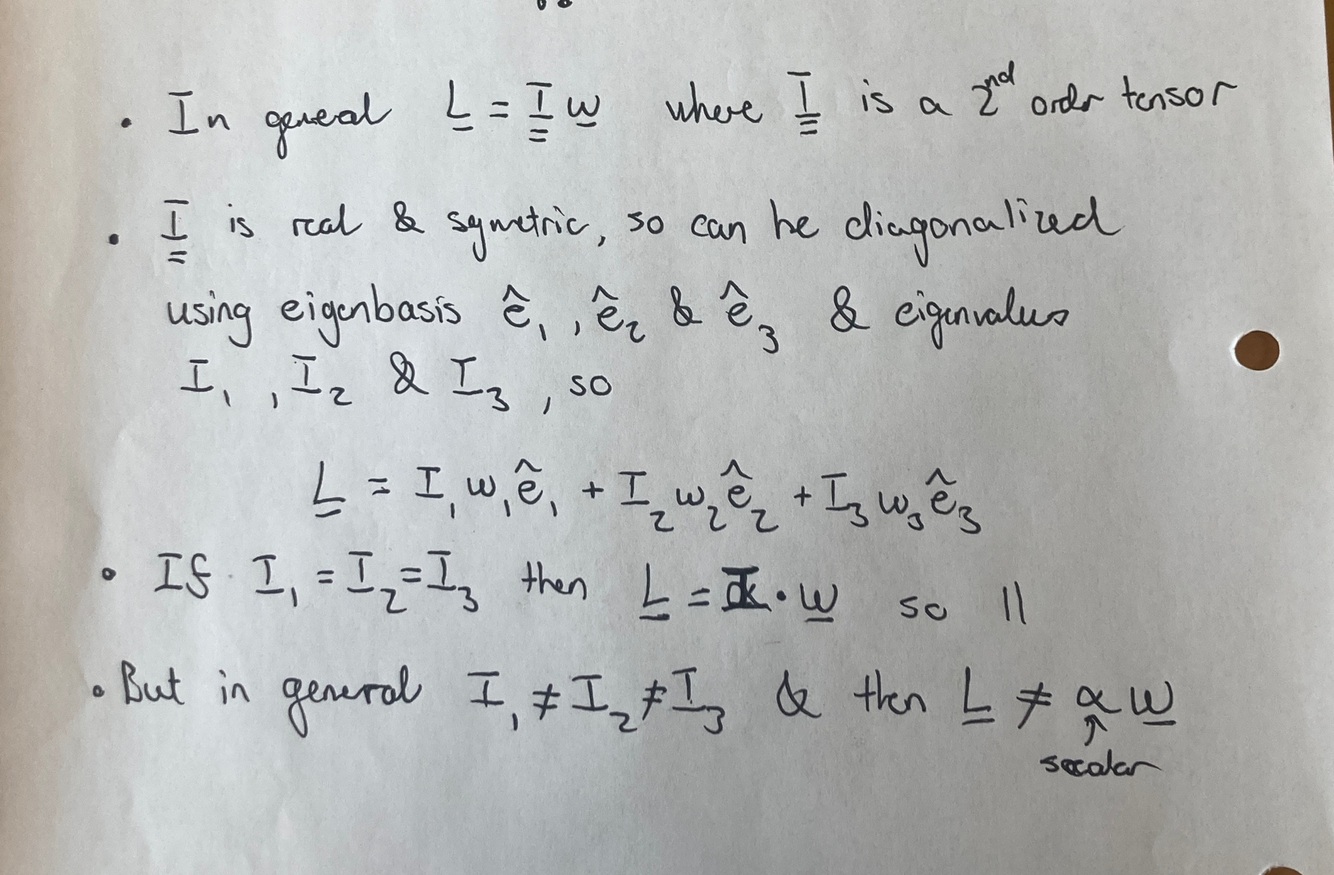 • In general L = I w where I is a 2nd order tensor
• I is real & symetric, so can be diagonalized
using eigenbasis ê₁, ê₂ & ê₃ & eigenvalues
I₁, I₂ & I₃, so
L = I₁w₁ê₁ + I₂w₂ê₂ + I₃w₃ê₃
• If I₁ = I₂ = I₃ then L = I · w so ||
• But in general I₁ ≠ I₂ ≠ I₃ & then L ≠ α w
↑
scalar